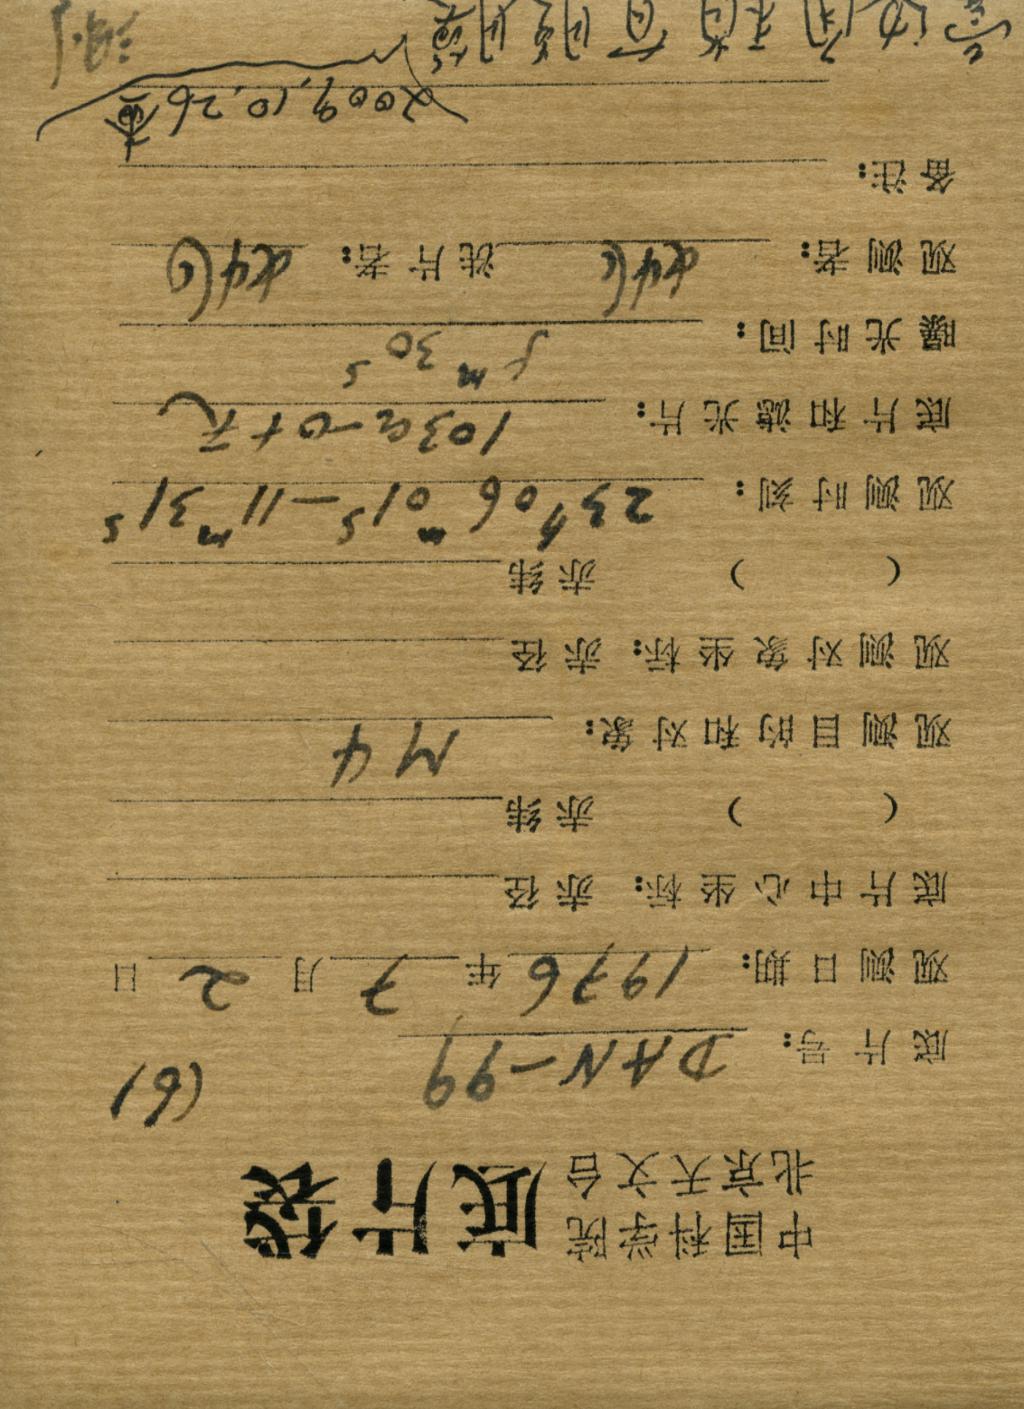 中国科学院
北京天文台
底片袋
(6)
底片号: DAN-99
观测日期: 1976年7月2日
底片中心坐标: 赤径
( ) 赤纬
观测目的和对象: M4
观测对象坐标: 赤径
( ) 赤纬
观测时刻: 23h06m01s-11m31s
底片和滤光片: 103a-O+无
曝光时间: 5m30s
观测者: 洗片者:
备注:
2009.10.26